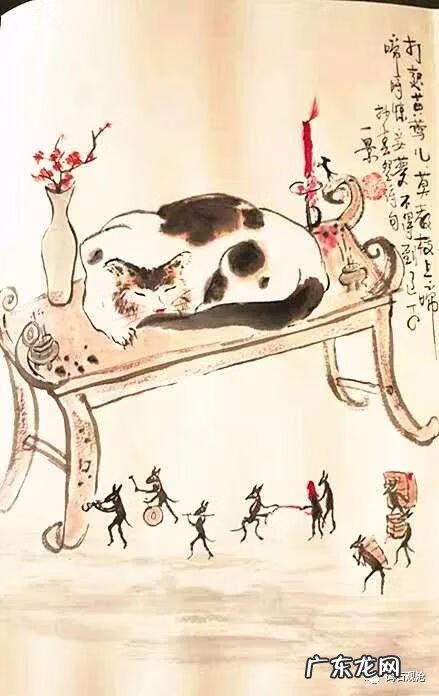 打起黄莺儿，莫教枝上啼
啼时惊妾梦不得到辽
抄唐人诗句
一景
广东龙网